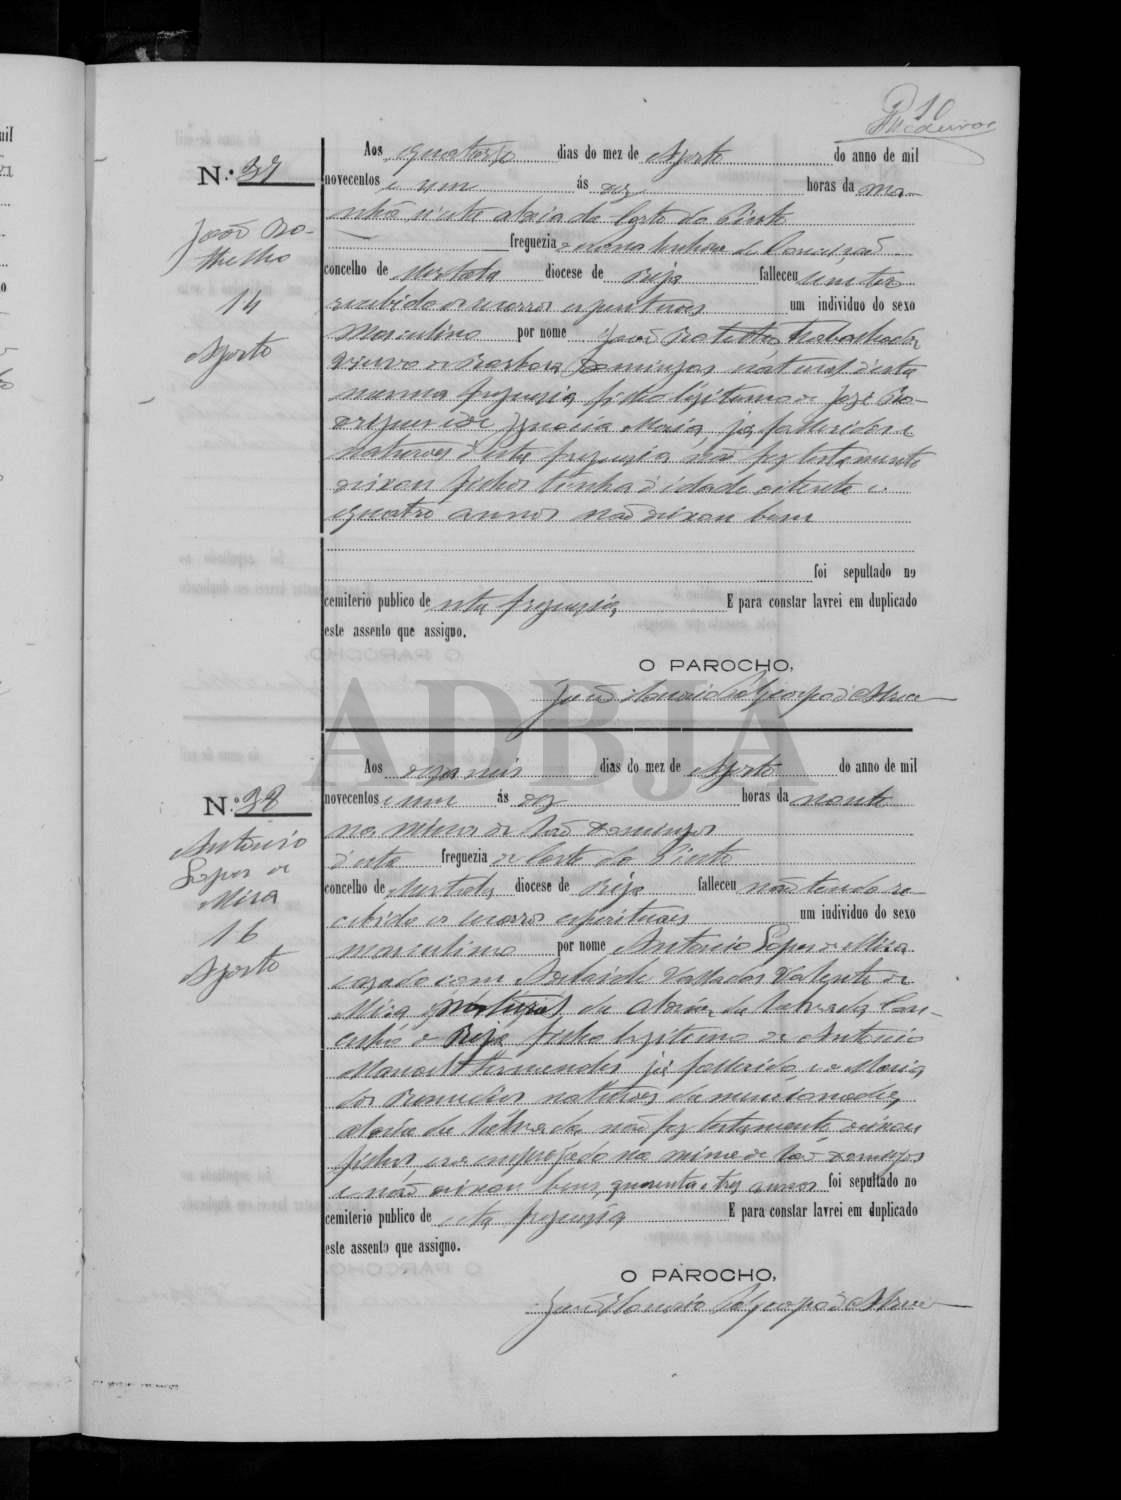 10
Medeiros
N.º 37
João Bo-
thelho
14
Agosto
Aos quatorze dias do mez de Agosto do anno de mil
novecentos e um ás dez horas da ma-
nhã n'esta aldeia da Corte do Pinto
freguezia de nossa Senhora da Conceição
concelho de Mertola diocese de Beja falleceu sem ter
recebido os socorros espirituaes um individuo do sexo
Masculino por nome João trabalhador
Viuvo de Barbara Domingas natural d'esta
mesma freguezia filho legitimo de José Ro-
drigues e de Ignacia Maria, já fallecidos e
naturaes d'esta freguezia não fez testamento
deixou filhos tinha d'idade oitenta e
quatro annos não deixou bens
foi sepultado no
cemiterio publico de esta freguezia E para constar lavrei em duplicado
este assento que assigno.
O PAROCHO,
João
ADBJA
N.º 38
Antonio
Lopes de
Mira
16
Agosto
Aos dezaseis dias do mez de Agosto do anno de mil
novecentos e um ás dez horas da noute
na Mina de São Domingos
d'esta freguezia de Corte do Pinto
concelho de Mertola diocese de Beja falleceu não tendo re-
cebido os socorros espirituaes um individuo do sexo
masculino por nome Antonio Lopes de Mira
cazado com Adelaide Valladas Valente de
Mira natural da Aldeia da Con-
celho de Beja filho legitimo de Antonio
Manoel Fernandes já fallecido, e de Maria
dos Remedios naturaes da mencionada
aldeia da não fez testamento, deixou
filhos, era empregado na mina de São Domingos
e não deixou bens, quarenta e tres annos foi sepultado no
cemiterio publico de esta freguezia E para constar lavrei em duplicado
este assento que assigno.
O PAROCHO,
João